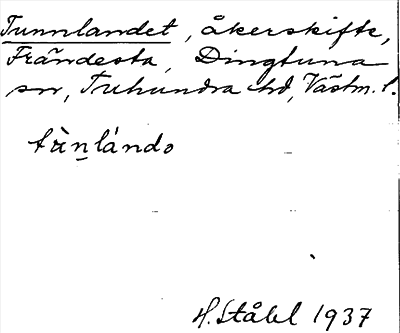 Tunnlandet, åkerskifte,
Frändesta, Dingtuna
sn, Tuhundra hd, Västm. l.
tànlándo
H. Ståhl 1937